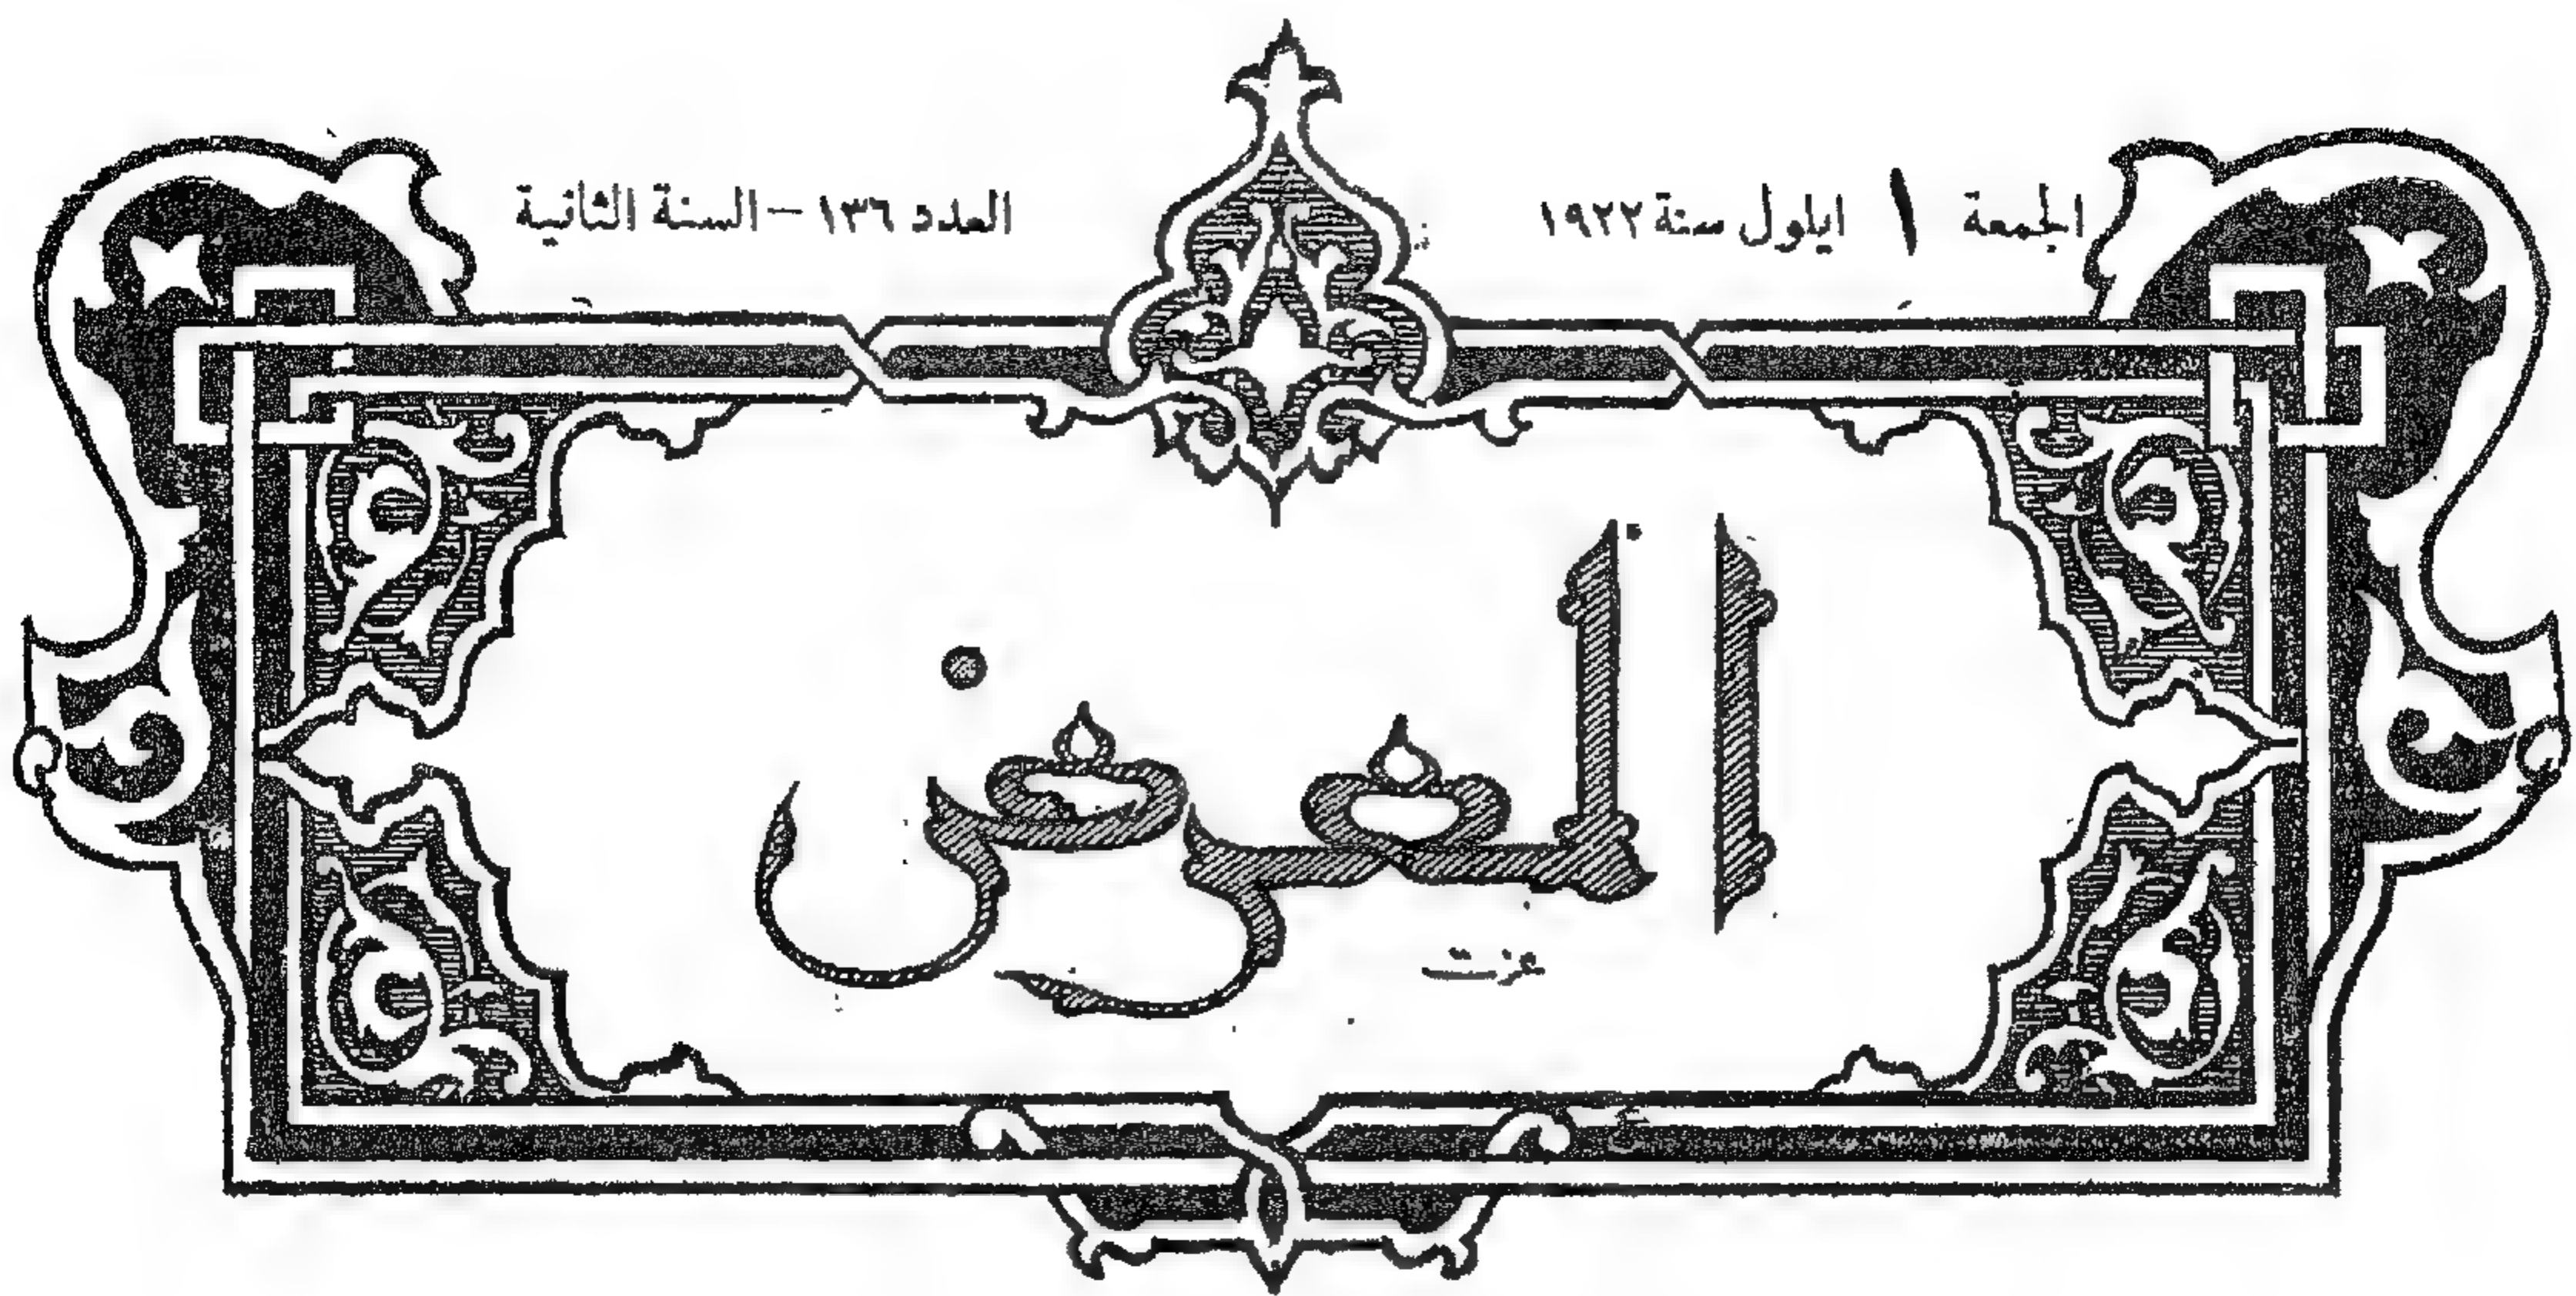 الجمعة ١ ايلول سنة ١٩٢٢
العدد ١٣٦ – السنة الثانية
المعرض
عزت